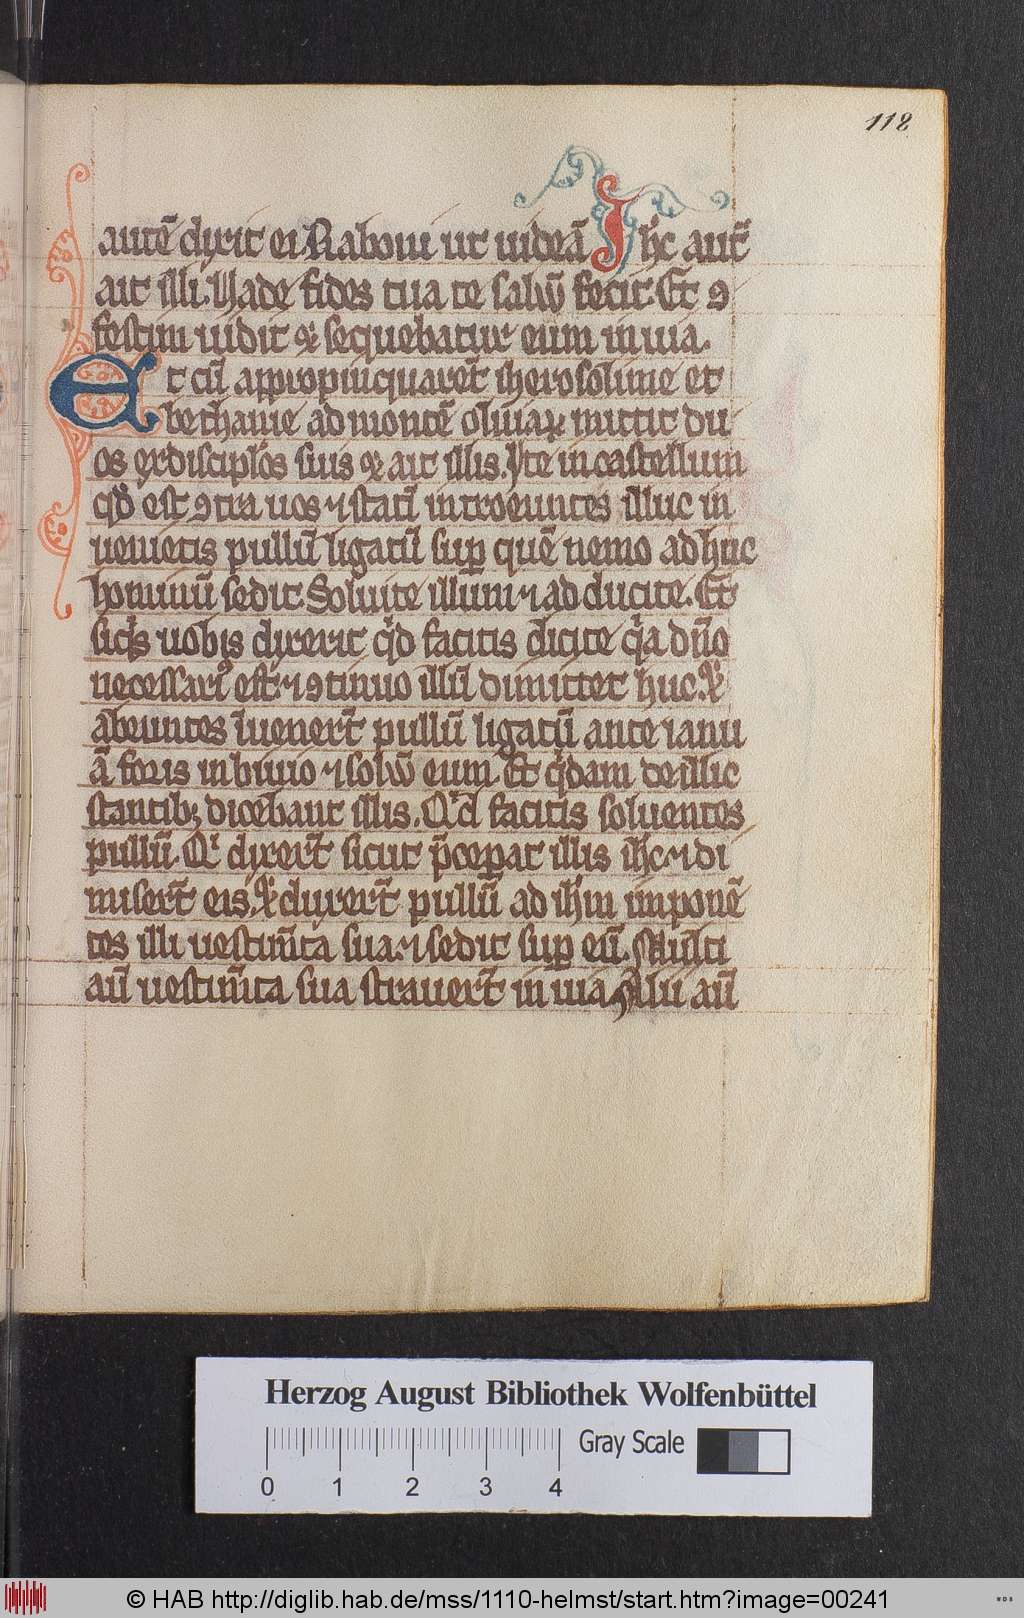 118
autē dixit ei Raboni ut uideā Ihc aut̄
ait illi. Uade fides tua te saluū fecit. Et ꝯ
festim uidit ⁊ sequebatur eum in uia.
Et cū appropinquaret̄ iherosolime et
bethanie ad montē oliuaꝝ mittit du
os ex discipl̓os suis ⁊ ait illis. Ite in castellum
qd̓ est ꝯtra uos ⁊ statī introeuntes illuc in
uenietis pullū ligatū suꝑ quē nemo adhuc
hominū sedit. Soluite illum ⁊ adducite. Et
siq̓s uobis dixerit q̓d facitis dicite q̓a dn̄o
necessari᷒ est ⁊ ꝯtinuo illū dimittet huc. ⁊
abeuntes īuenert̄ pullū ligatū ante ianu
ā foris in biuio ⁊ soluū eum Et q̓dam de illic
stantibꝫ dicebant illis. Q̓d facitis soluentes
pullū. Q̓i dixert̄ sicut p̄ceꝑat illis ihc ⁊ di
misert̄ eis. ⁊ duxert̄ pullū ad ih̓m imponē
tes illi uestim̄ta sua ⁊ sedit suꝑ eū. Multi
aū uestim̄ta sua strauert̄ in uia Alii aū
Herzog August Bibliothek Wolfenbüttel
Gray Scale
0 1 2 3 4
© HAB http://diglib.hab.de/mss/1110-helmst/start.htm?image=00241